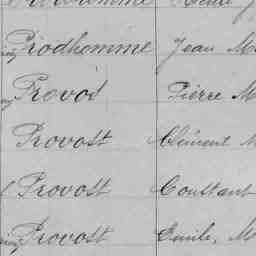 Prodhomme Jean M
Provost Pierre M
Provost Clément M
Provost Constant
Provost Emile, M